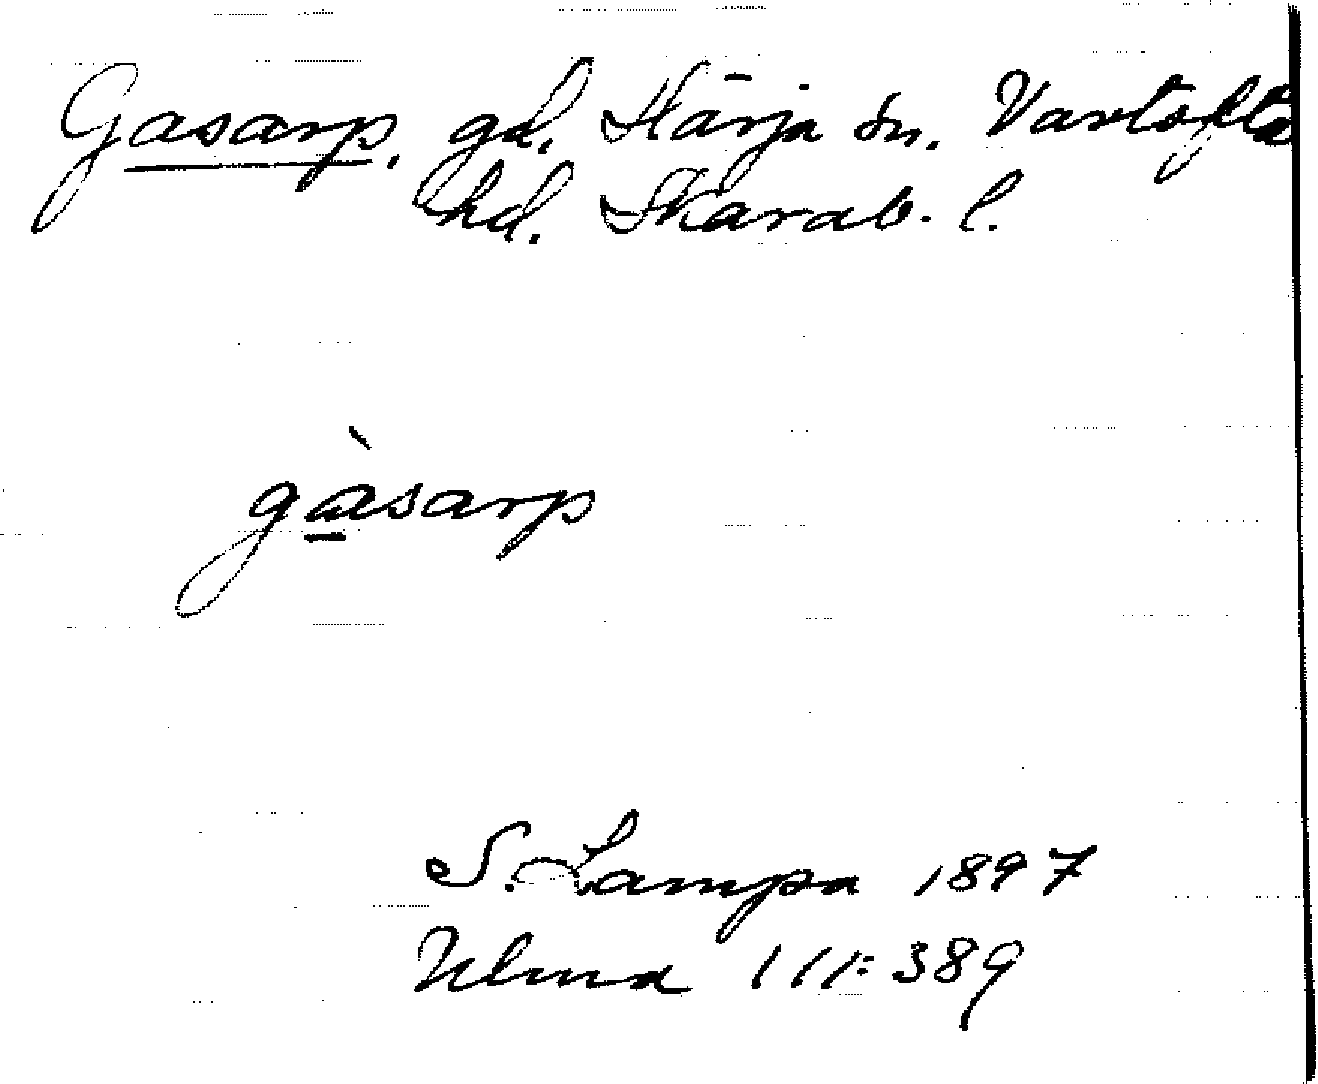 Gasarp, gd, Härja sn. Vartofta
hd. Skarab. l.
gàsarp
S. Lampa 1897
Ulma 111:389